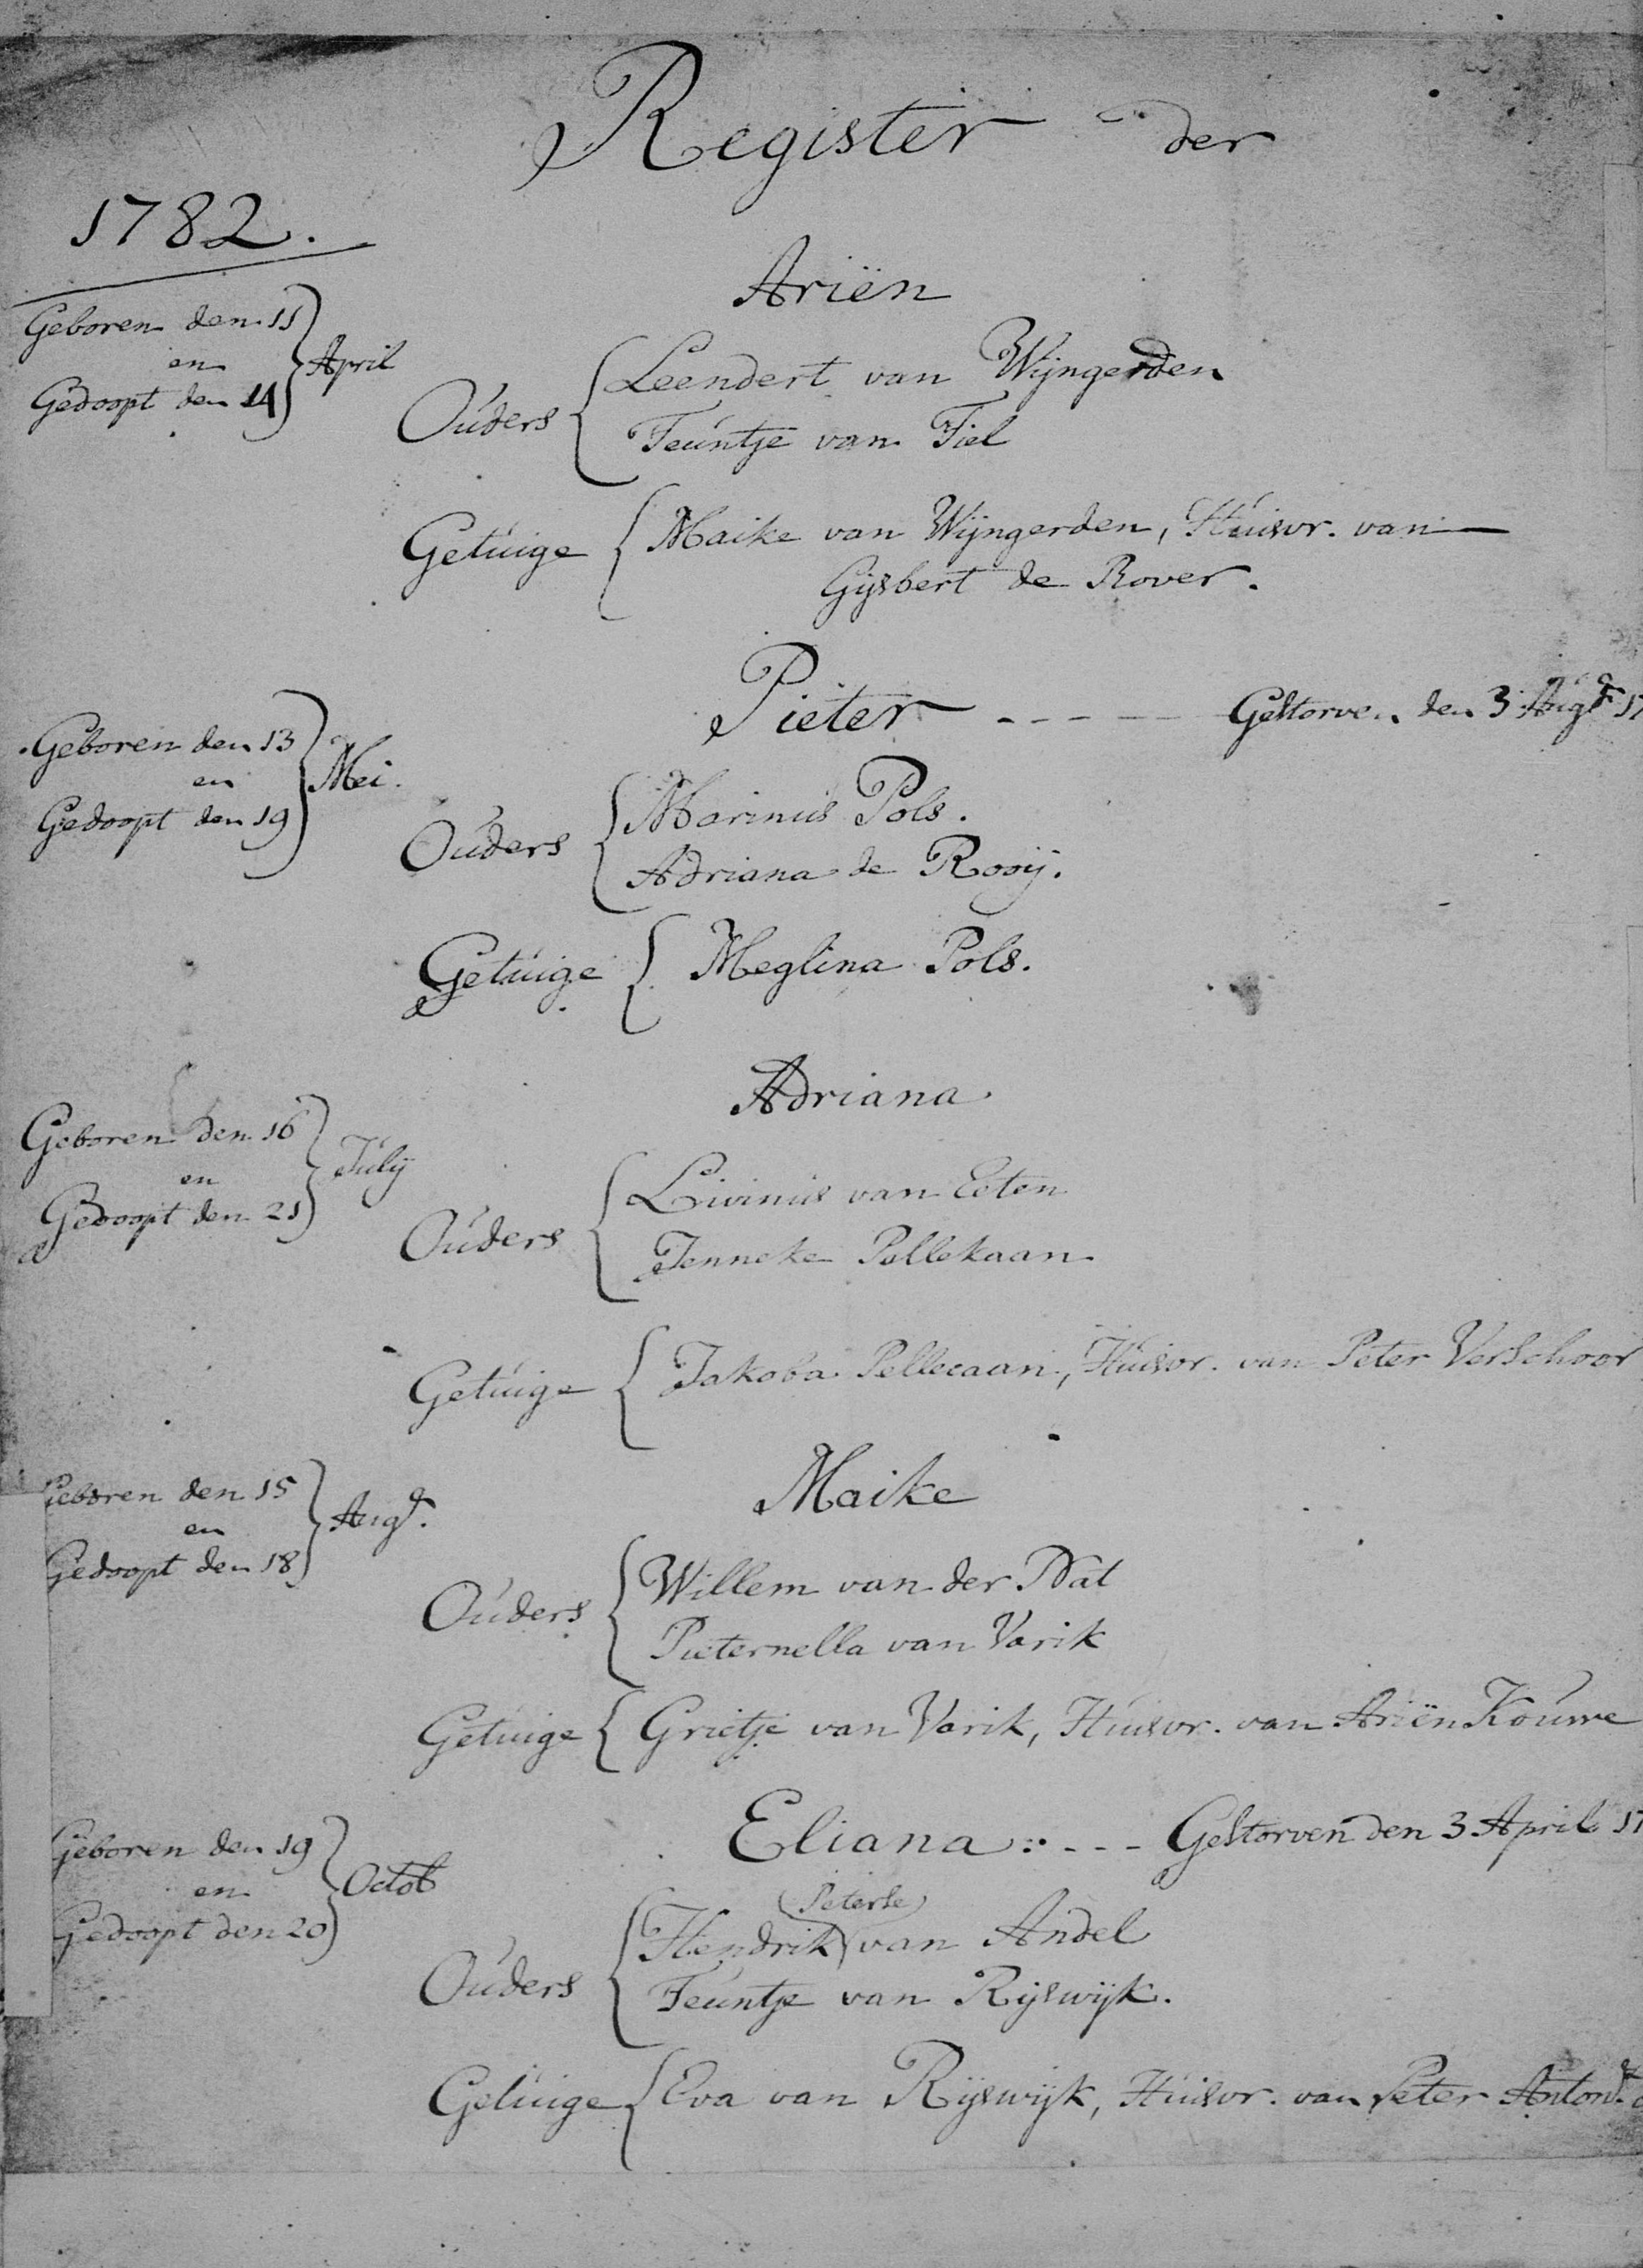 Register der
1782.
Ariën
Geboren den 11
en
Gedoopt den 14
April
Ouders
Leendert van Wijngerden
Teuntje van Tiel
Getuige
Maike van Wijngerden, Huisvr. van
Gijsbert de Rover.
Pieter - - - - Gestorven den 3 Augt 17
Geboren den 13
en
Gedoopt den 19
Mei.
Ouders
Marinus Pols.
Adriana de Rooij.
Getuige
Meglina Pols.
Adriana
Geboren den 16
en
Gedoopt den 21
Julij
Ouders
Livinus van Eeten
Jenneke Pellekaan
Getuige
Jakoba Pellecaan, Huisvr. van Peter Verschoor
Maike
Geboren den 15
en
Gedoopt den 18
Augt.
Ouders
Willem van der Pat
Pieternella van Varik
Getuige
Grietje van Varik, Huisvr. van Ariën Kouwe
Eliana: - - - Gestorven den 3 April 17
Geboren den 19
en
Gedoopt den 20
Octob
Ouders
(Peterse)
Hendrik van Andel
Teuntje van Rijswijk.
Getuige
Eva van Rijswijk, Huisvr. van Peter